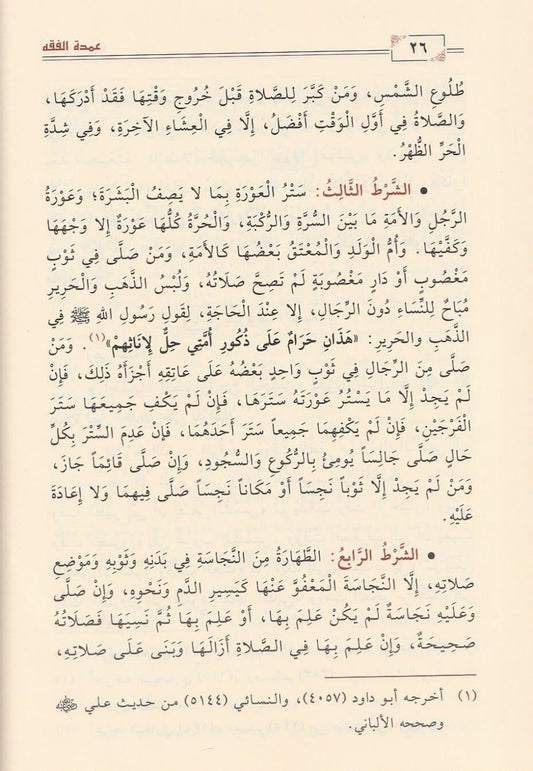 عمدة الفقه
٢٦
طُلُوعِ الشَّمْسِ، وَمَنْ كَبَّرَ لِلصَّلاةِ قَبْلَ خُرُوجِ وَقْتِهَا فَقَدْ أَدْرَكَهَا،
وَالصَّلاةُ فِي أَوَّلِ الْوَقْتِ أَفْضَلُ، إِلَّا فِي الْعِشَاءِ الآخِرَةِ، وَفِي شِدَّةِ
الْحَرِّ الظُّهْرُ.
• الشَّرْطُ الثَّالِثُ: سَتْرُ الْعَوْرَةِ بِمَا لا يَصِفُ الْبَشَرَةَ؛ وَعَوْرَةُ
الرَّجُلِ وَالأَمَةِ مَا بَيْنَ السُّرَّةِ وَالرُّكْبَةِ، وَالْحُرَّةُ كُلُّهَا عَوْرَةٌ إِلا وَجْهَهَا
وَكَفَّيْهَا. وَأُمُّ الْوَلَدِ وَالْمُعْتَقُ بَعْضُهَا كَالأَمَةِ، وَمَنْ صَلَّى فِي ثَوْبٍ
مَغْصُوبٍ أَوْ دَارٍ مَغْصُوبَةٍ لَمْ تَصِحَّ صَلَاتُهُ، وَلُبْسُ الذَّهَبِ وَالْحَرِيرِ
مُبَاحٌ لِلنِّسَاءِ دُونَ الرِّجَالِ، إِلا عِنْدَ الْحَاجَةِ، لِقَولِ رَسُولِ اللهِ ﷺ فِي
الذَّهَبِ وَالحَرِيرِ: «هَذَانِ حَرَامٌ عَلَى ذُكُورِ أُمَّتِي حِلٌّ لِإِنَاثِهِمْ»(١). وَمَنْ
صَلَّى مِنَ الرِّجَالِ فِي ثَوْبٍ وَاحِدٍ بَعْضُهُ عَلَى عَاتِقِهِ أَجْزَأَهُ ذَلِكَ، فَإِنْ
لَمْ يَجِدْ إِلَّا مَا يَسْتُرُ عَوْرَتَهُ سَتَرَهَا، فَإِنْ لَمْ يَكْفِ جَمِيعَهَا سَتَرَ
الْفَرْجَيْنِ، فَإِنْ لَمْ يَكْفِهِمَا جَمِيعاً سَتَرَ أَحَدَهُمَا، فَإِنْ عَدِمَ السِّتْرَ بِكُلِّ
حَالٍ صَلَّى جَالِساً يُومِئُ بِالرُّكُوعِ وَالسُّجُودِ، وَإِنْ صَلَّى قَائِماً جَازَ،
وَمَنْ لَمْ يَجِدْ إِلَّا ثَوْباً نَجِساً أَوْ مَكَاناً نَجِساً صَلَّى فِيهِمَا وَلا إِعَادَةَ
عَلَيْهِ.
• الشَّرْطُ الرَّابِعُ: الطَّهَارَةُ مِنَ النَّجَاسَةِ فِي بَدَنِهِ وَثَوْبِهِ وَمَوْضِعِ
صَلاتِهِ، إِلَّا النَّجَاسَةَ الْمَعْفُوَّ عَنْهَا كَيَسِيرِ الدَّمِ وَنَحْوِهِ، وَإِنْ صَلَّى
وَعَلَيْهِ نَجَاسَةٌ لَمْ يَكُنْ عَلِمَ بِهَا، أَوْ عَلِمَ بِهَا ثُمَّ نَسِيَهَا فَصَلَاتُهُ
صَحِيحَةٌ، وَإِنْ عَلِمَ بِهَا فِي الصَّلاةِ أَزَالَهَا وَبَنَى عَلَى صَلاتِهِ،
(١) أخرجه أبو داود (٤٠٥٧)، والنسائي (٥١٤٤) من حديث علي رضي الله عنه
وصححه الألباني.